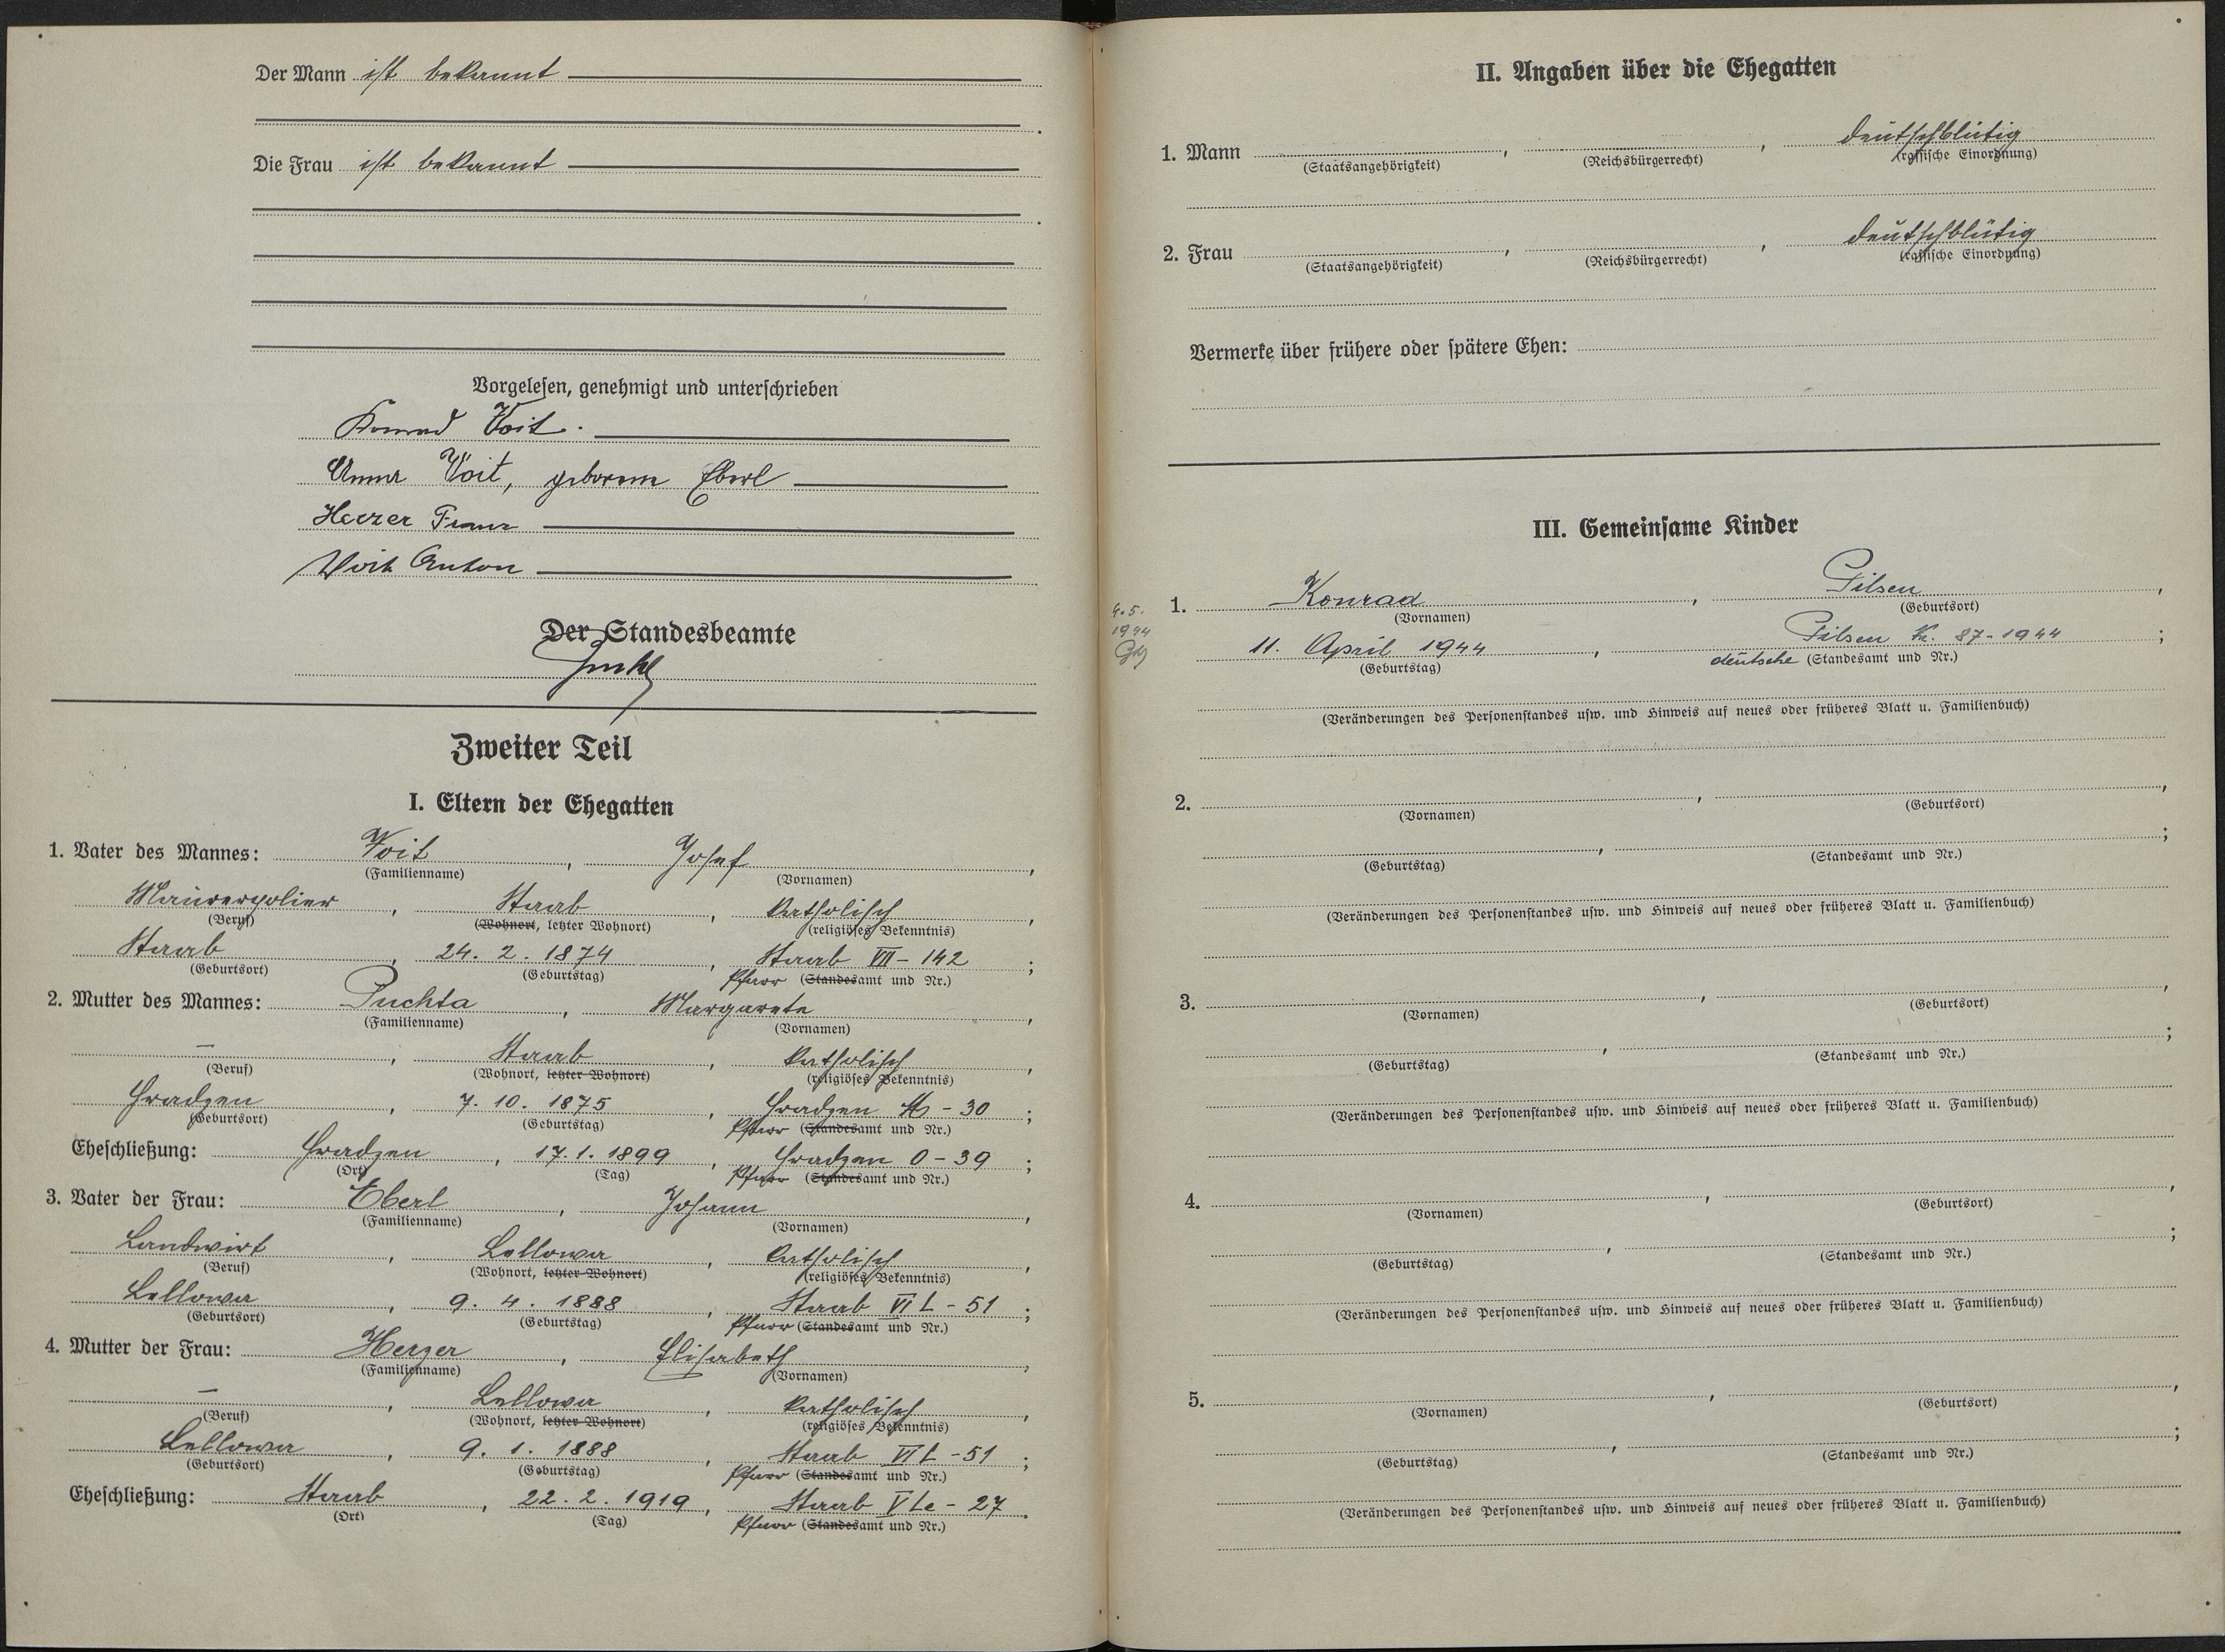 Der Mann ist bekannt
Die Frau ist bekannt
Vorgelesen, genehmigt und unterschrieben
Konrad Voit.
Anna Voit, geborene Eberl
Herzer Franz
Voit Anton
Der Standesbeamte
Zweiter Teil
I. Eltern der Ehegatten
1. Vater des Mannes: Voit, Josef,
(Familienname) (Vornamen)
Maurerpolier, Staab, katholisch,
(Beruf) (Wohnort, letzter Wohnort) (religiöses Bekenntnis)
Staab, 24. 2. 1874, Staab VII - 142;
(Geburtsort) (Geburtstag) Pfarr (Standesamt und Nr.)
2. Mutter des Mannes: Puchta, Margareta,
(Familienname) (Vornamen)
—, Staab, katholisch,
(Beruf) (Wohnort, letzter Wohnort) (religiöses Bekenntnis)
Hradzen, 7. 10. 1875, Hradzen - 30;
(Geburtsort) (Geburtstag) Pfarr (Standesamt und Nr.)
Eheschließung: Hradzen, 17. 1. 1899, Hradzen 0 - 39;
(Ort) (Tag) Pfarr (Standesamt und Nr.)
3. Vater der Frau: Eberl, Johann,
(Familienname) (Vornamen)
Landwirt, Lellowa, katholisch,
(Beruf) (Wohnort, letzter Wohnort) (religiöses Bekenntnis)
Lellowa, 9. 4. 1888, Staab VI L - 51;
(Geburtsort) (Geburtstag) Pfarr (Standesamt und Nr.)
4. Mutter der Frau: Herzer, Elisabeth,
(Familienname) (Vornamen)
—, Lellowa, katholisch,
(Beruf) (Wohnort, letzter Wohnort) (religiöses Bekenntnis)
Lellowa, 9. 1. 1888, Staab VI L - 51;
(Geburtsort) (Geburtstag) Pfarr (Standesamt und Nr.)
Eheschließung: Staab, 22. 2. 1919, Staab V Le - 27.
(Ort) (Tag) Pfarr (Standesamt und Nr.)
II. Angaben über die Ehegatten
1. Mann , , deutschblütig
(Staatsangehörigkeit) (Reichsbürgerrecht) (rassische Einordnung)
2. Frau , , deutschblütig
(Staatsangehörigkeit) (Reichsbürgerrecht) (rassische Einordnung)
Vermerke über frühere oder spätere Ehen:
III. Gemeinsame Kinder
4. 5.
1944
1. Konrad, Pilsen,
(Vornamen) (Geburtsort)
11. April 1944, Pilsen Nr. 87-1944;
(Geburtstag) deutsche (Standesamt und Nr.)
(Veränderungen des Personenstandes usw. und Hinweis auf neues oder früheres Blatt u. Familienbuch)
2. , ,
(Vornamen) (Geburtsort)
, ;
(Geburtstag) (Standesamt und Nr.)
(Veränderungen des Personenstandes usw. und Hinweis auf neues oder früheres Blatt u. Familienbuch)
3. , ,
(Vornamen) (Geburtsort)
, ;
(Geburtstag) (Standesamt und Nr.)
(Veränderungen des Personenstandes usw. und Hinweis auf neues oder früheres Blatt u. Familienbuch)
4. , ,
(Vornamen) (Geburtsort)
, ;
(Geburtstag) (Standesamt und Nr.)
(Veränderungen des Personenstandes usw. und Hinweis auf neues oder früheres Blatt u. Familienbuch)
5. , ,
(Vornamen) (Geburtsort)
, ;
(Geburtstag) (Standesamt und Nr.)
(Veränderungen des Personenstandes usw. und Hinweis auf neues oder früheres Blatt u. Familienbuch)